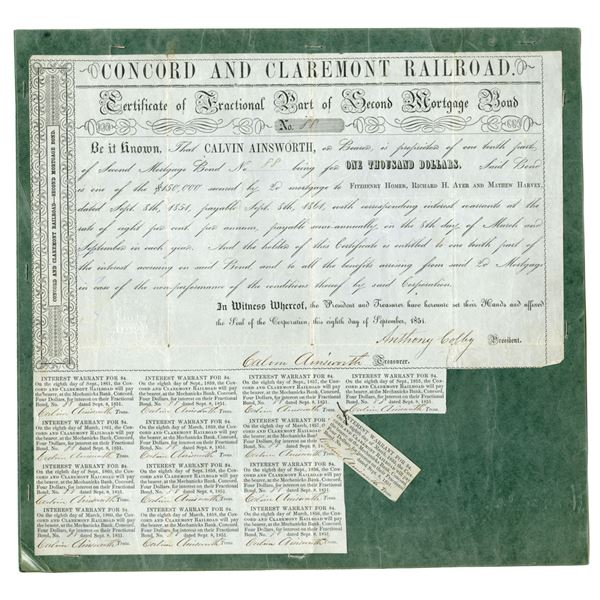 CONCORD AND CLAREMONT RAILROAD.
Certificate of Fractional Part of Second Mortgage Bond
No. 88
CONCORD AND CLAREMONT RAILROAD—SECOND MORTGAGE BOND.
Be it Known, That CALVIN AINSWORTH, or Bearer, is proprietor of one tenth part,
of Second Mortgage Bond No. 88 being for ONE THOUSAND DOLLARS. Said Bond
is one of the $150,000 secured by 2d mortgage to FITZHENRY HOMER, RICHARD H. AYER AND MATHEW HARVEY,
dated Sept. 8th, 1851, payable Sept. 8th, 1861, with corresponding interest warrants at the
rate of eight per cent per annum, payable semi-annually, on the 8th days of March and
September in each year. And the holder of this Certificate is entitled to one tenth part of
the interest accruing on said Bond, and to all the benefits arising from said 2d Mortgage
in case of the non-performance of the conditions thereof by said Corporation.
In Witness Whereof, the President and Treasurer have hereunto set their Hands and affixed
the Seal of the Corporation, this eighth day of September, 1851.
Anthony Colby President.
Calvin Ainsworth Treasurer.
INTEREST WARRANT FOR $4.
On the eighth day of Sept., 1861, the CON-
CORD AND CLAREMONT RAILROAD will pay
the bearer, at the Mechanicks Bank, Concord,
Four Dollars, for interest on their Fractional
Bond, No. 88 dated Sept. 8, 1851.
Calvin Ainsworth Treas.
INTEREST WARRANT FOR $4.
On the eighth day of Sept., 1859, the CON-
CORD AND CLAREMONT RAILROAD will pay
the bearer, at the Mechanicks Bank, Concord,
Four Dollars, for interest on their Fractional
Bond, No. 88 dated Sept. 8, 1851.
Calvin Ainsworth Treas.
INTEREST WARRANT FOR $4.
On the eighth day of Sept., 1857, the CON-
CORD AND CLAREMONT RAILROAD will pay
the bearer, at the Mechanicks Bank, Concord,
Four Dollars, for interest on their Fractional
Bond, No. 88 dated Sept. 8, 1851.
Calvin Ainsworth Treas.
INTEREST WARRANT FOR $4.
On the eighth day of Sept., 1855, the CON-
CORD AND CLAREMONT RAILROAD will pay
the bearer, at the Mechanicks Bank, Concord,
Four Dollars, for interest on their Fractional
Bond, No. 88 dated Sept. 8, 1851.
Calvin Ainsworth Treas.
INTEREST WARRANT FOR $4.
On the eighth day of March, 1861, the CON-
CORD AND CLAREMONT RAILROAD will pay
the bearer, at the Mechanicks Bank, Concord,
Four Dollars, for interest on their Fractional
Bond, No. 88 dated Sept. 8, 1851.
Calvin Ainsworth Treas.
INTEREST WARRANT FOR $4.
On the eighth day of March, 1859, the CON-
CORD AND CLAREMONT RAILROAD will pay
the bearer, at the Mechanicks Bank, Concord,
Four Dollars, for interest on their Fractional
Bond, No. 88 dated Sept. 8, 1851.
Calvin Ainsworth Treas.
INTEREST WARRANT FOR $4.
On the eighth day of March, 1857, the CON-
CORD AND CLAREMONT RAILROAD will pay
the bearer, at the Mechanicks Bank, Concord,
Four Dollars, for interest on their Fractional
Bond, No. 88 dated Sept. 8, 1851.
Calvin Ainsworth Treas.
INTEREST WARRANT FOR $4.
INTEREST WARRANT FOR $4.
On the eighth day of Sept., 1860, the CON-
CORD AND CLAREMONT RAILROAD will pay
the bearer, at the Mechanicks Bank, Concord,
Four Dollars, for interest on their Fractional
Bond, No. 88 dated Sept. 8, 1851.
Calvin Ainsworth Treas.
INTEREST WARRANT FOR $4.
On the eighth day of Sept., 1858, the CON-
CORD AND CLAREMONT RAILROAD will pay
the bearer, at the Mechanicks Bank, Concord,
Four Dollars, for interest on their Fractional
Bond, No. 88 dated Sept. 8, 1851.
Calvin Ainsworth Treas.
INTEREST WARRANT FOR $4.
On the eighth day of Sept., 1856, the CON-
CORD AND CLAREMONT RAILROAD will pay
the bearer, at the Mechanicks Bank, Concord,
Four Dollars, for interest on their Fractional
Bond, No. 88 dated Sept. 8, 1851.
Calvin Ainsworth Treas.
INTEREST WARRANT FOR $4.
On the eighth day of March, 1860, the CON-
CORD AND CLAREMONT RAILROAD will pay
the bearer, at the Mechanicks Bank, Concord,
Four Dollars, for interest on their Fractional
Bond, No. 88 dated Sept. 8, 1851.
Calvin Ainsworth Treas.
INTEREST WARRANT FOR $4.
On the eighth day of March, 1858, the CON-
CORD AND CLAREMONT RAILROAD will pay
the bearer, at the Mechanicks Bank, Concord,
Four Dollars, for interest on their Fractional
Bond, No. 88 dated Sept. 8, 1851.
Calvin Ainsworth Treas.
INTEREST WARRANT FOR $4.
On the eighth day of March, 1856, the CON-
CORD AND CLAREMONT RAILROAD will pay
the bearer, at the Mechanicks Bank, Concord,
Four Dollars, for interest on their Fractional
Bond, No. 88 dated Sept. 8, 1851.
Calvin Ainsworth Treas.